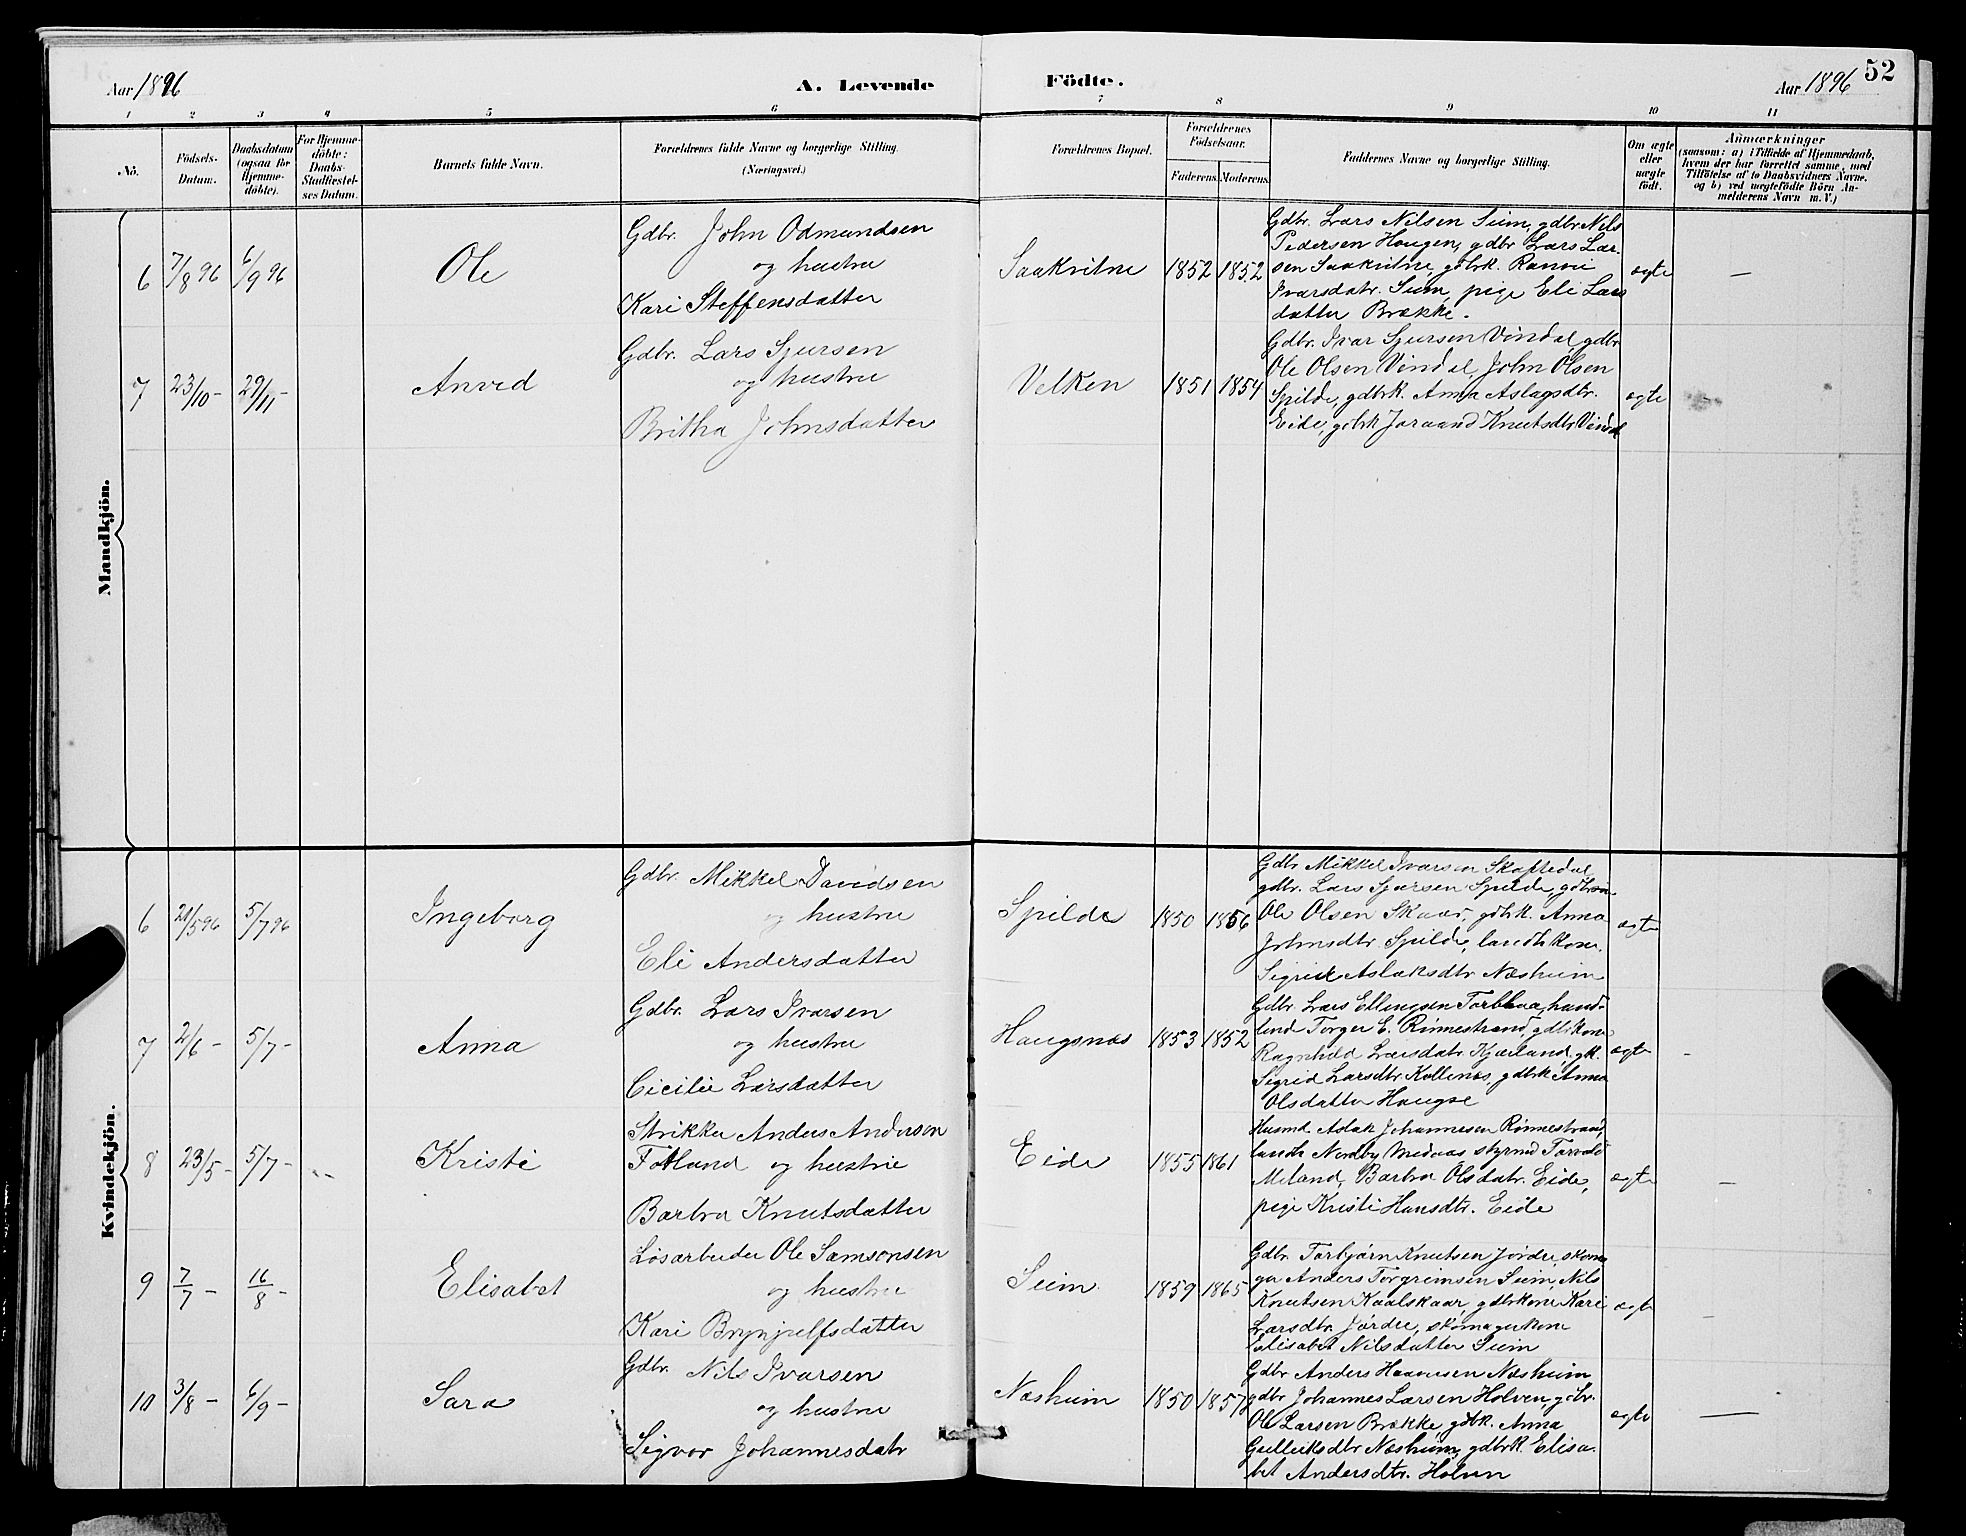 Aar 1896
A. Levende Födte.
Aar 1896
52
1 2 3 4 5 6 7 8 9 10 11
No.
Födsels-
Datum.
Daabsdatum
(ogsaa for
Hjemme-
döbte).
For Hjemme-
döbte:
Daabs-
Stadfæstel-
ses Datum.
Barnets fulde Navn.
Forældrenes fulde Navne og borgerlige Stilling.
(Næringsvei.)
Forældrenes Bopæl.
Forældrenes
Födselsaar.
Faderens. Moderens.
Faddernes Navne og borgerlige Stilling.
Om ægte
eller
uægte
födt.
Anmærkninger
(saasom: a) i Tilfælde af Hjemmedaab,
hvem der har forrettet samme, med
Tilföielse af to Daabsvidners Navne,
og b) ved uægtefödte Börn An-
melderens Navn m. V.)
Mandkjön.
6 7/8 96 6/9 96 Ole
Gdbr. John Odmundsen
og hustru
Kari Steffensdatter
Saakvitne 1852 1852
Gdbr. Lars Nilsen Seim, gdbr Nils
Pedersen Haugen, gdbr Lars Lar-
sen Saakvitne, gdbrk. Ranvei
Ivarsdatr. Seim, pige Eli Lars
datter Brække.
ægte —
7 23/10 - 29/11 - Anved
Gdbr. Lars Sjursen
og hustru
Britha Johnsdatter
Velken 1851 1854
Gdbr. Ivar Sjursen Vindal, gdbr
Ole Olsen Vindal, John Olsen
Spilde, gdbrk. Anna Aslagsdtr.
Eide, gdbrk Joraand Knutsdtr Vindal
ægte
Kvindekjön.
6 5/7 96 Ingeborg
Gdbr. Mikkel Davidsen
og hustru
Eli Andersdatter
Spilde 1850 1856
Gdbr Mikkel Ivarsen Skaftedal
gdbr. Lars Sjursen Spilde, gdbrm
Ole Olsen Skaar, gdbrk. Anna
Johnsdtr Spilde, landhkone
Sigrid Aslaksdtr Næsheim
ægte
7 2/6 - 5/7 - Anna
Gdbr. Lars Ivarsen
og hustru
Cicilie Larsdatter
Haugsnæs 1853 1852
Gdbr. Lars Ellingsen Torblaa, hand-
lend Torger E. Rönnestrand, gdbrkone
Ragnhild Larsdatr Kjærland, gk.
Sigrid Larsdtr Kollenæs, gdbrk Anna
Olsdatter Haugse
ægte -
8 23/5 - 5/7 - Kristi
Strikker Anders Andersen
Fotland og hustru
Barbra Knutsdatter
Eide 1855 1861
Husmd Aslak Johannesen Rönnestrand,
landh Nordby Medaas styrmd Torvald
Meland, Barbra Olsdatr. Eide,
pige Kristi Hansdtr. Eide
ægte —
9 7/7 - 16/8 - Elisabet
Lösarbeider Ole Samsonsen
og hustru
Kari Brynjulfsdatter
Seim 1859 1865
Gdbr. Torbjörn Knutsen Jördre, skoma-
ger Anders Torgrimsen Seim, Nils
Knutsen Kaalskaar, gdbrkone Kari
Larsdtr. Jördre, skomagerkone
Elisabet Nilsdatter Seim
ægte —
10 3/8 - 6/9 - Sara
Gdbr. Nils Ivarsen
og hustru
Sigvor Johannesdatr
Næsheim 1850 1857
Gdbr Anders Hansen Næsheim
gdbr Johannes Larsen Holven, gdbr.
Ole Larsen Brække, gdbk. Anna
Gulleiksdtr Næsheim, gdbrk. Elisa-
bet Andersdtr. Holven
ægte —